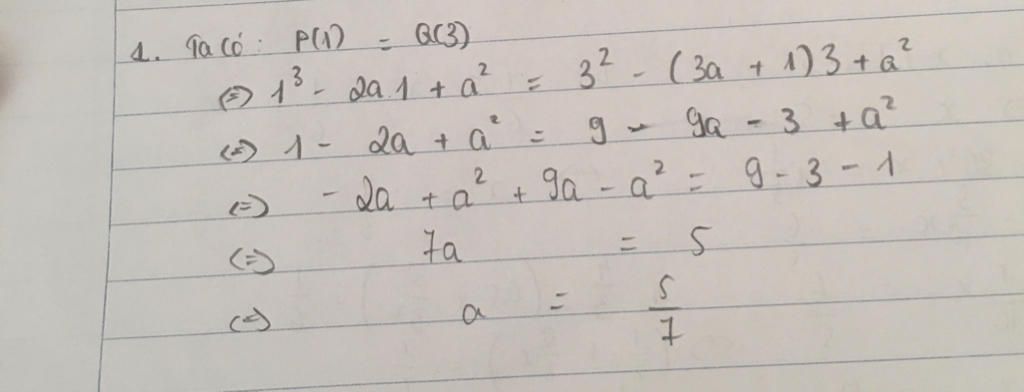 1. Ta có: P(1) = Q(3)
(=) 1³ - 2a1 + a² = 3² - (3a + 1)3 + a²
(=) 1 - 2a + a² = 9 - 9a - 3 + a²
(=) - 2a + a² + 9a - a² = 9 - 3 - 1
(=) 7a = 5
(=) a = 5/7